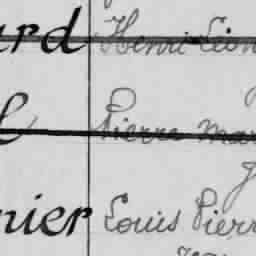 ard Henri Léon
Pierre Mar
nier Louis Pierr